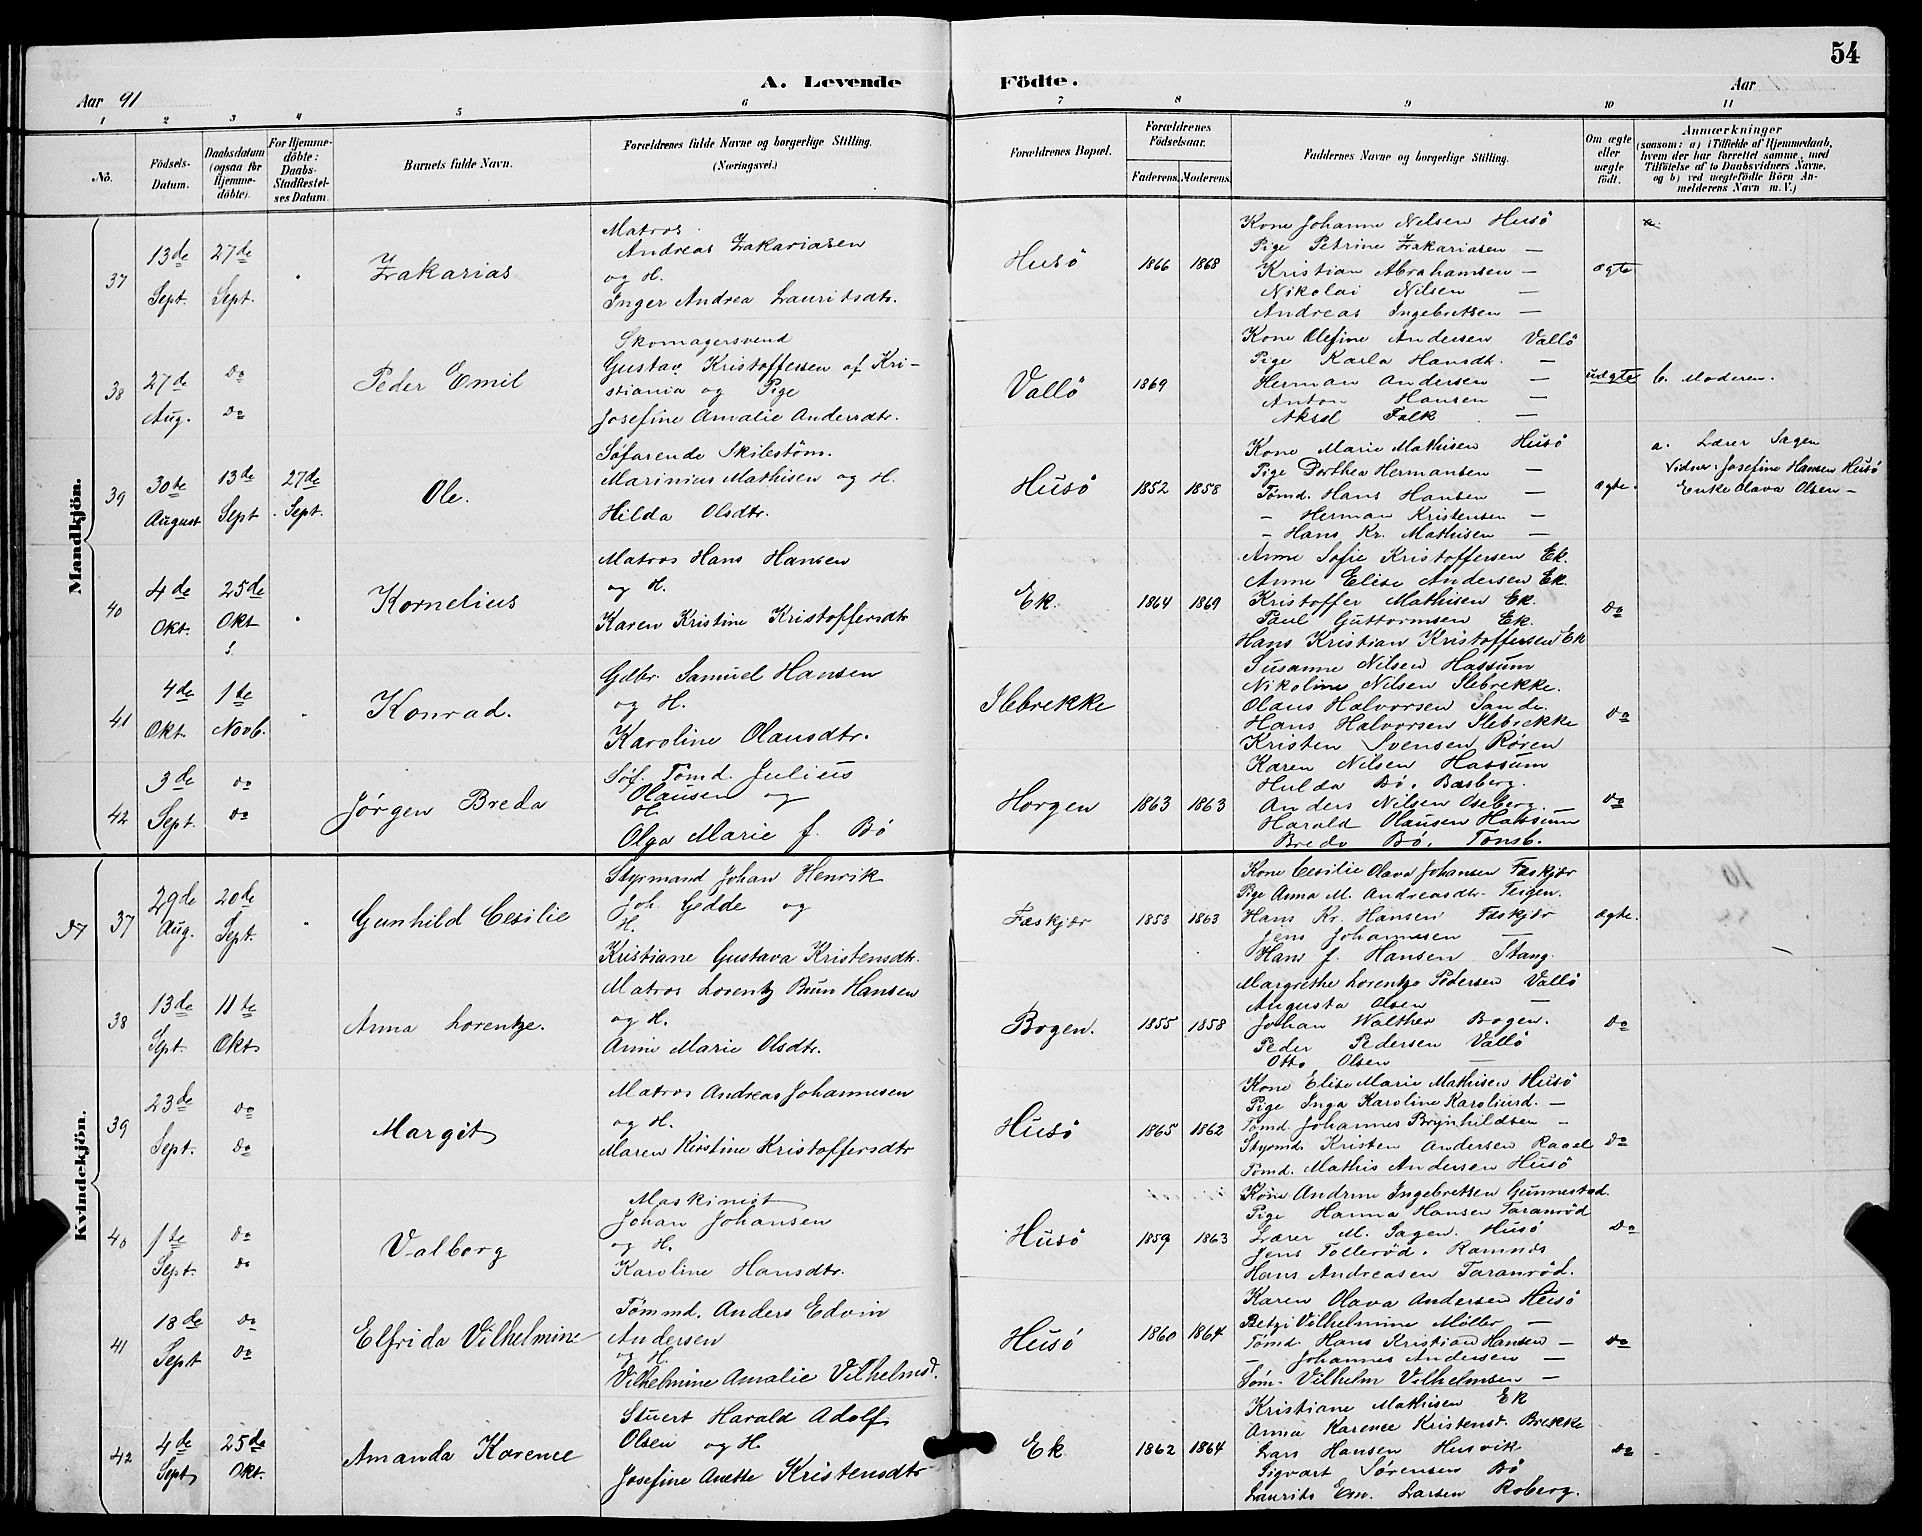 54
A. Levende Födte.
Aar 91
Aar
1 2 3 4 5 6 7 8 9 10 11
No.
Födsels-Datum.
Daabsdatum (ogsaa for Hjemme-döbte).
For Hjemme-döbte: Daabs-Stadfæstel-ses Datum.
Barnets fulde Navn.
Forældrenes fulde Navne og borgerlige Stilling.
(Næringsvei.)
Forældrenes Bopæl.
Forældrenes Födselsaar.
Faderens. Moderens.
Faddernes Navne og borgerlige Stilling.
Om ægte eller uægte födt.
Anmærkninger
(saasom: a) i Tilfælde af Hjemmedaab,
hvem der har forrettet samme, med
Tilföielse af to Daabsvidners Navne,
og b) ved uægtefödte Börn An-
melderens Navn m. V.)
Mandkjön.
37
13de Sept.
27de Sept.
Zakarias
Matros
Andreas Zakariasen
og H.
Inger Andrea Lauritsdtr.
Husö
1866 1868
Kone Johanne Nilsen Husö
Pige Petrine Zakariasen —
Kristian Abrahamsen —
Nikolai Nilsen —
Andreas Ingebretsen —
ægte
38
27de Aug.
do do
Peder Emil
Skomagersvend
Gustav Kristoffersen af Kri-
stiania og Pige
Josefine Amalie Andersdtr.
Vallö
1869
Kone Olefine Andersen Vallö
Pige Karla Hansdt. —
Herman Andersen —
Anton Hansen —
Aksel Falk —
uægte
b. Moderen.
39
30te August
13de Sept
27de Sept.
Ole.
Søfarende Skilestöm.
Marinius Mathisen og H.
Hilda Olsdtr.
Husö
1852 1858
Kone Marie Mathisen Husö
Pige Dorthea Hermansen —
Tømd. Hans Hansen —
– Herman Kristensen —
– Hans Kr. Mathisen —
ægte.
a. Lærer Sagen
Vidner: Josefine Hansen Husö
Enke Olava Olsen –
40
4de Okt.
25de Okt
Kornelius
Matros Hans Hansen
og H.
Karen Kristine Kristoffersdtr
Ek.
1864 1869
Anne Sofie Kristoffersen Ek.
Anne Elise Andersen Ek.
Kristoffer Mathisen Ek.
Paul Guttormsen Ek.
Hans Kristian Kristoffersen Ek
do
41
4de Okt
1te Novb.
Konrad.
Gdbr. Samuel Hansen
og H.
Karoline Olausdtr.
Ilebrekke
Susanne Nilsen Hassum
Nikoline Nilsen Ilebrekke.
Olaus Halvorsen Sande.
Hans Halvorsen Ilebrekke
Kristen Svensen Røren
do
42
3de Sept.
do do
Jørgen Breda
Søf. Tømd. Julius
Olausen og
H.
Olga Marie f. Bö
Horgen
1863 1863
Karen Nilsen Hassum
Hulda Bö, Basberg.
Anders Nilsen Oseberg. —
Harald Olausen Hassum
Breda Bö, Tönsb.
do
Kvindekjön.
37
29de Aug.
20de Sept.
Gunhild Cesilie
Styrmand Johan Henrik
Joh. Gedde og
H.
Kristiane Gustava Kristensdtr.
Fæskjær
1858 1863
Kone Cesilie Olava Johansen Fæskjær
Pige Anna M. Andreasdtr. Teigen.
Hans Kr. Hansen Fæskjær
Jens Johannesen —
Hans J. Hansen Stang.
ægte.
38
13de Sept.
11te Okt
Anna Lorentze.
Matros Lorentz Brun Hansen
og H.
Anne Marie Olsdtr.
Bogen.
1855 1858
Margrethe Lorentze Pedersen Vallö
Augusta Olsen —
Johan Walther Bogen.
Peder Pedersen Vallö
Otto Olsen —
do
39
23de Sept.
do do
Margit
Matros Andreas Johannesen
og H.
Maren Kirstine Kristoffersdtr
Husö
1865 1862
Kone Elise Marie Mathisen Husö
Pige Inga Karoline Karoliusd. —
Tømd. Johannes Brynhildsen –
Styrmd. Kristen Andersen Raael
Tømd. Mathis Andersen Husö
do
40
1te Sept.
do do
Valborg
Maskinist
Johan Johansen
og H.
Karoline Hansdtr.
Husö
1859 1863
Kone Andrine Ingebretsen Gunnestad.
Pige Hanna Hansen Taranröd
Lærer M. Sagen. Husö
Jens Tolleröd, Ramnes
Hans Andreasen Taranröd.
do
41
18de Sept
do do
Elfrida Vilhelmine
Tömmd. Anders Edvin
Andersen
og H.
Vilhelmine Amalie Vilhelmsd.
Husö
1860 1864
Karen Olava Andersen Husö
Betzi Vilhelmine Möller —
Tømd. Hans Kristian Hansen —
– Johannes Andersen —
Søm. Vilhelm Vilhelmsen —
do
42
4de Sept
25de Okt.
Amanda Karence
Stuert Harald Adolf
Olsen og H.
Josefine Anette Kristensdtr
Ek
1862 1864
Kristiane Mathisen Ek
Anna Karence Kristensd. Brekke
Lars Hansen Husvik
Sigvart Sørensen Bö
Laurits Em. Larsen Roberg.
do